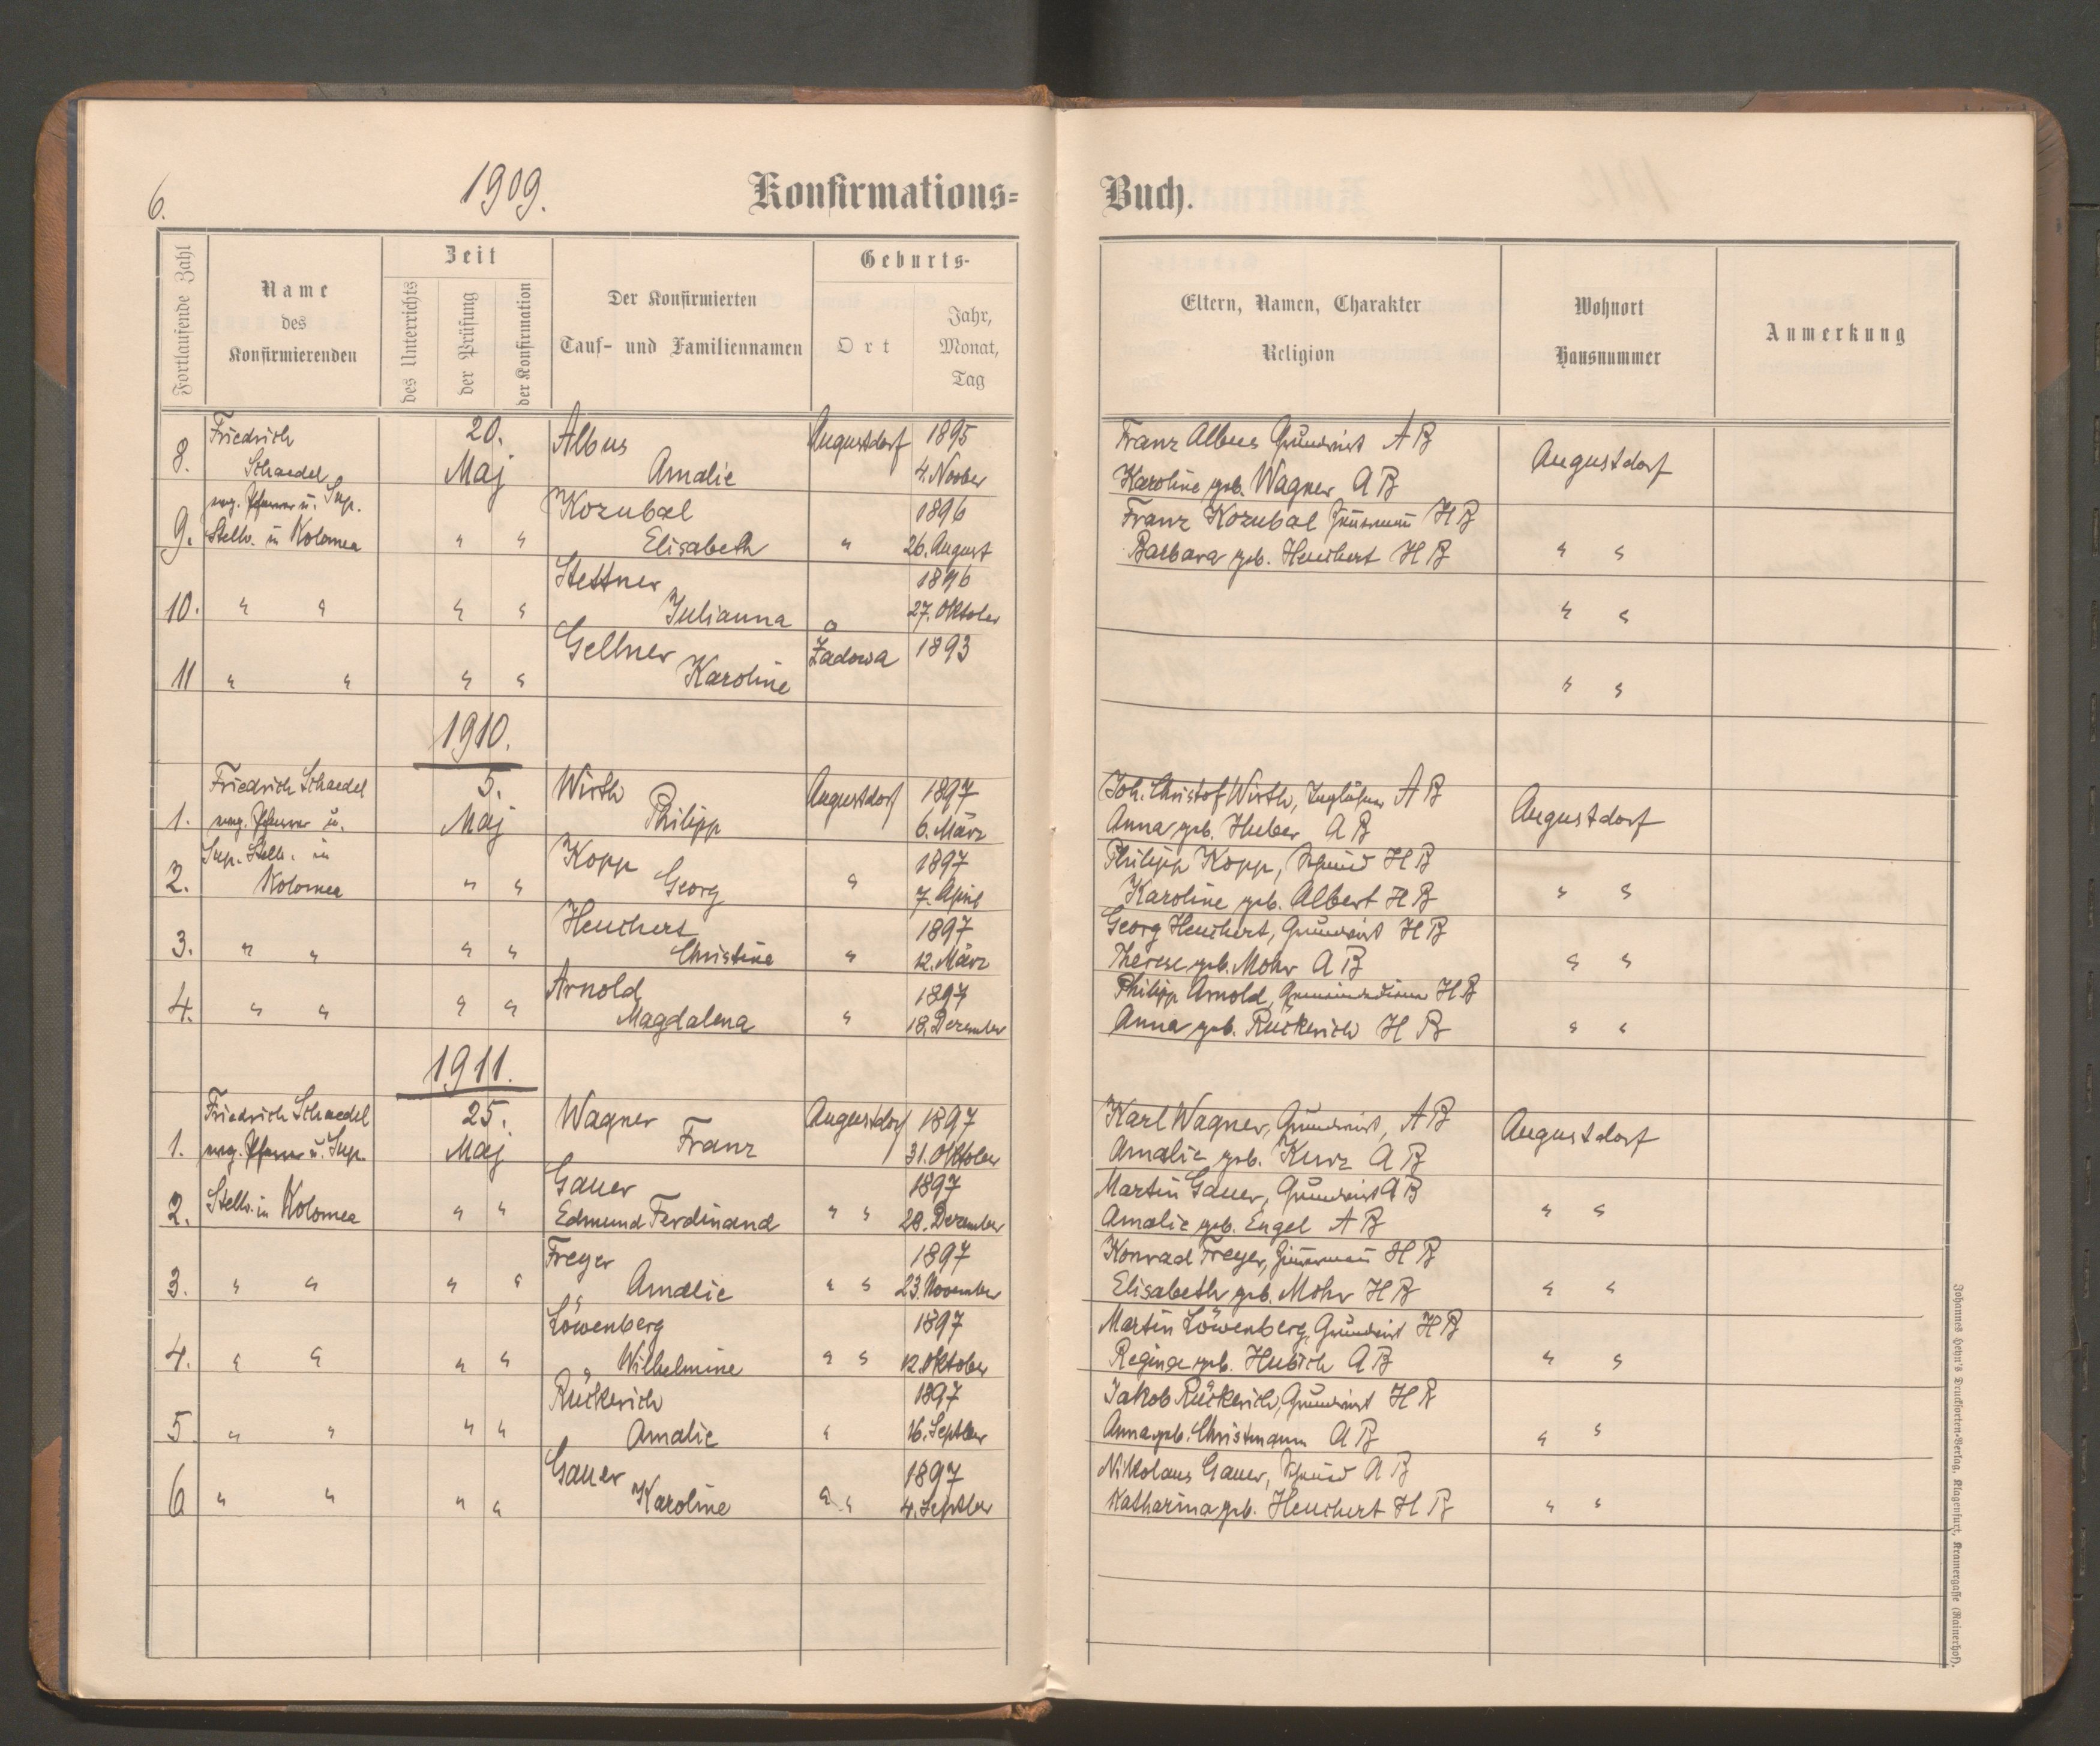 6.
1909.
Konfirmations=
Buch.
Fortlaufende Zahl
Name
des
Konfirmierenden
Zeit
des Unterrichts
der Prüfung
der Konfirmation
Der Konfirmierten
Tauf- und Familiennamen
Geburts-
Ort
Jahr,
Monat,
Tag
Eltern, Namen, Charakter
Religion
Wohnort
Hausnummer
Anmerkung
8. Friedrich 20. Albus Augustdorf 1895 Franz Albus Grundwirt A B Augustdorf
Schaedel Maj Amalie 4. Novber Karoline geb. Wagner A B
evg. Pfarrer u. Sup. Kozubal 1896 Franz Kozubal H B
9. Stellv. in Kolomea " " Elisabeth " 26. August Barbara geb. Heuchert H B " "
Stettner 1896
10. " " " " Julianna " 27. Oktober " "
Gellner Zadowa 1893
11 " " " " Karoline " "
1910.
Friedrich Schaedel 5. Wirth Augustdorf 1897 Joh. Christof Wirth, A B Augustdorf
1. evg. Pfarrer u. Maj Philipp 6. März Anna geb. Huber A B
Sup. Stellv. in Kopp 1897 Philipp Kopp, Schmied H B
2. Kolomea " " Georg " 7. April Karoline geb. Albert H B " "
Heuchert 1897 Georg Heuchert, Grundwirt H B
3. " " " " Christine " 12. März Therese geb. Mohr A B " "
Arnold 1897 Philipp Arnold, Gemeindediener H B
4. " " " " Magdalena " 18. Dezember Anna geb. Rückerich H B " "
1911.
Friedrich Schaedel 25. Wagner Augustdorf 1897 Karl Wagner, Grundwirt, A B Augustdorf
1. evg. Pfarrer u. Sup. Maj Franz 31. Oktober Amalie geb. Kurz A B
Gauer 1897 Martin Gauer, Grundwirt A B
2. Stellv. in Kolomea " " Edmund Ferdinand " " 28. Dezember Amalie geb. Engel A B " "
Freyer 1897 Konrad Freyer, H B
3. " " " " Amalie " " 23. November Elisabeth geb. Mohr H B " "
Löwenberg 1897 Martin Löwenberg, Grundwirt H B
4. " " " " Wilhelmine " " 12. Oktober Regina geb. Hubich A B " "
Rückerich 1897 Jakob Rückerich, Grundwirt H B
5 " " " " Amalie " 16. Septber Anna geb. Christmann A B " "
Gauer 1897 Nikolaus Gauer, Schmied A B
6 " " " " Karoline " " 4. Septber Katharina geb. Heuchert H B " "
Johannes Heyn's Drucksorten-Verlag, Klagenfurt, Kramergasse (Rainerhof).